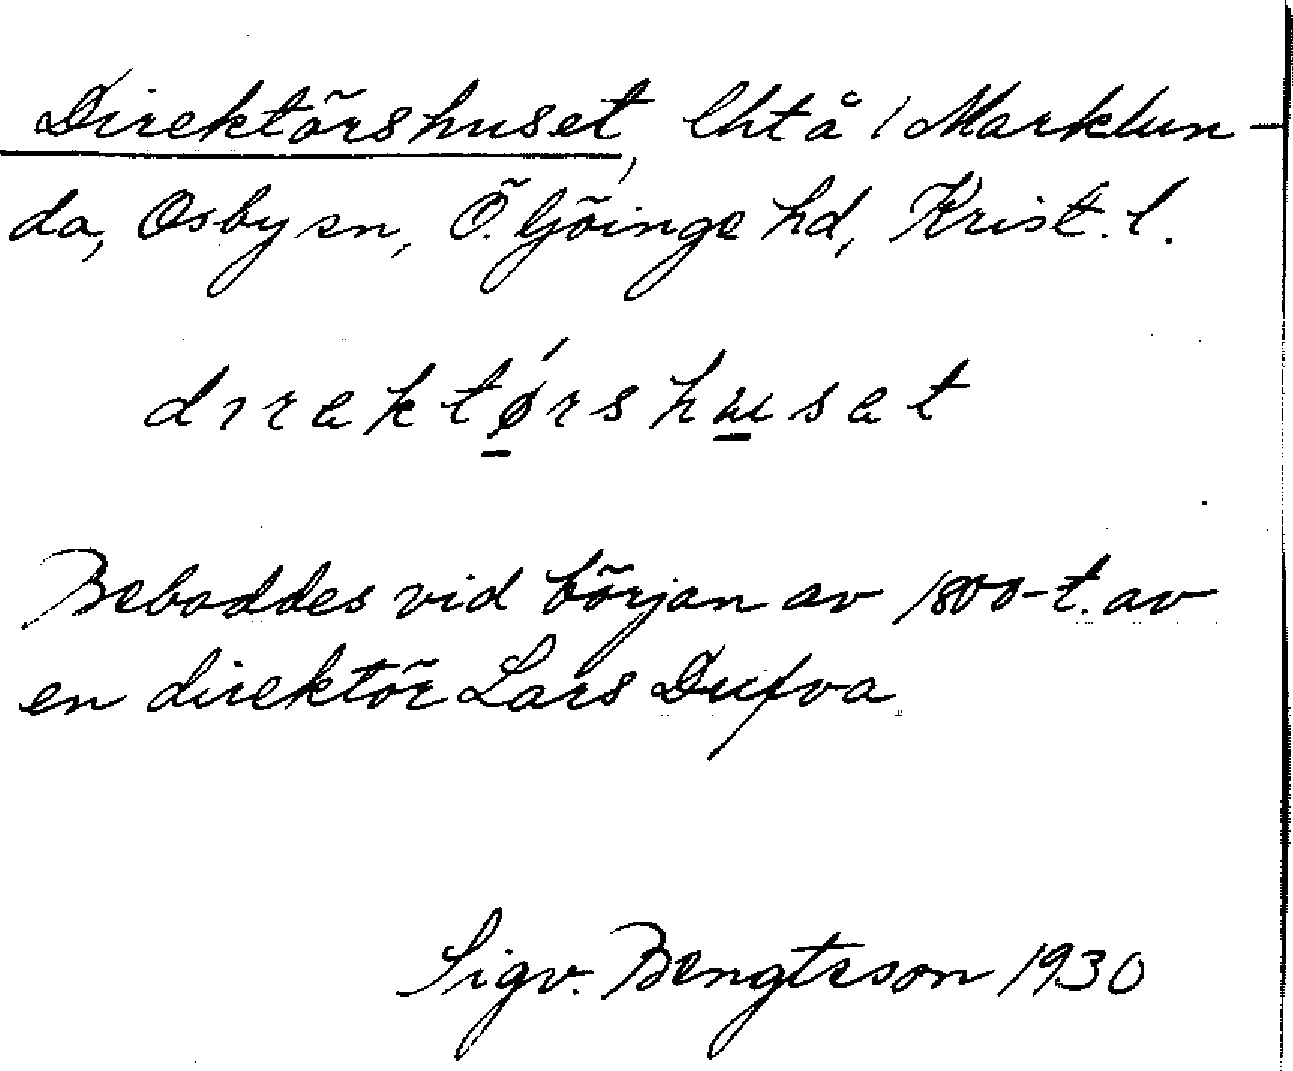 Direktörshuset, lht å / Marklun-
da, Osby sn, Ö. Göinge hd, Krist. l.
dırektǿrshuset
Beboddes vid början av 1800-t. av
en direktör Lars Dufva
Sigv. Bengtsson 1930